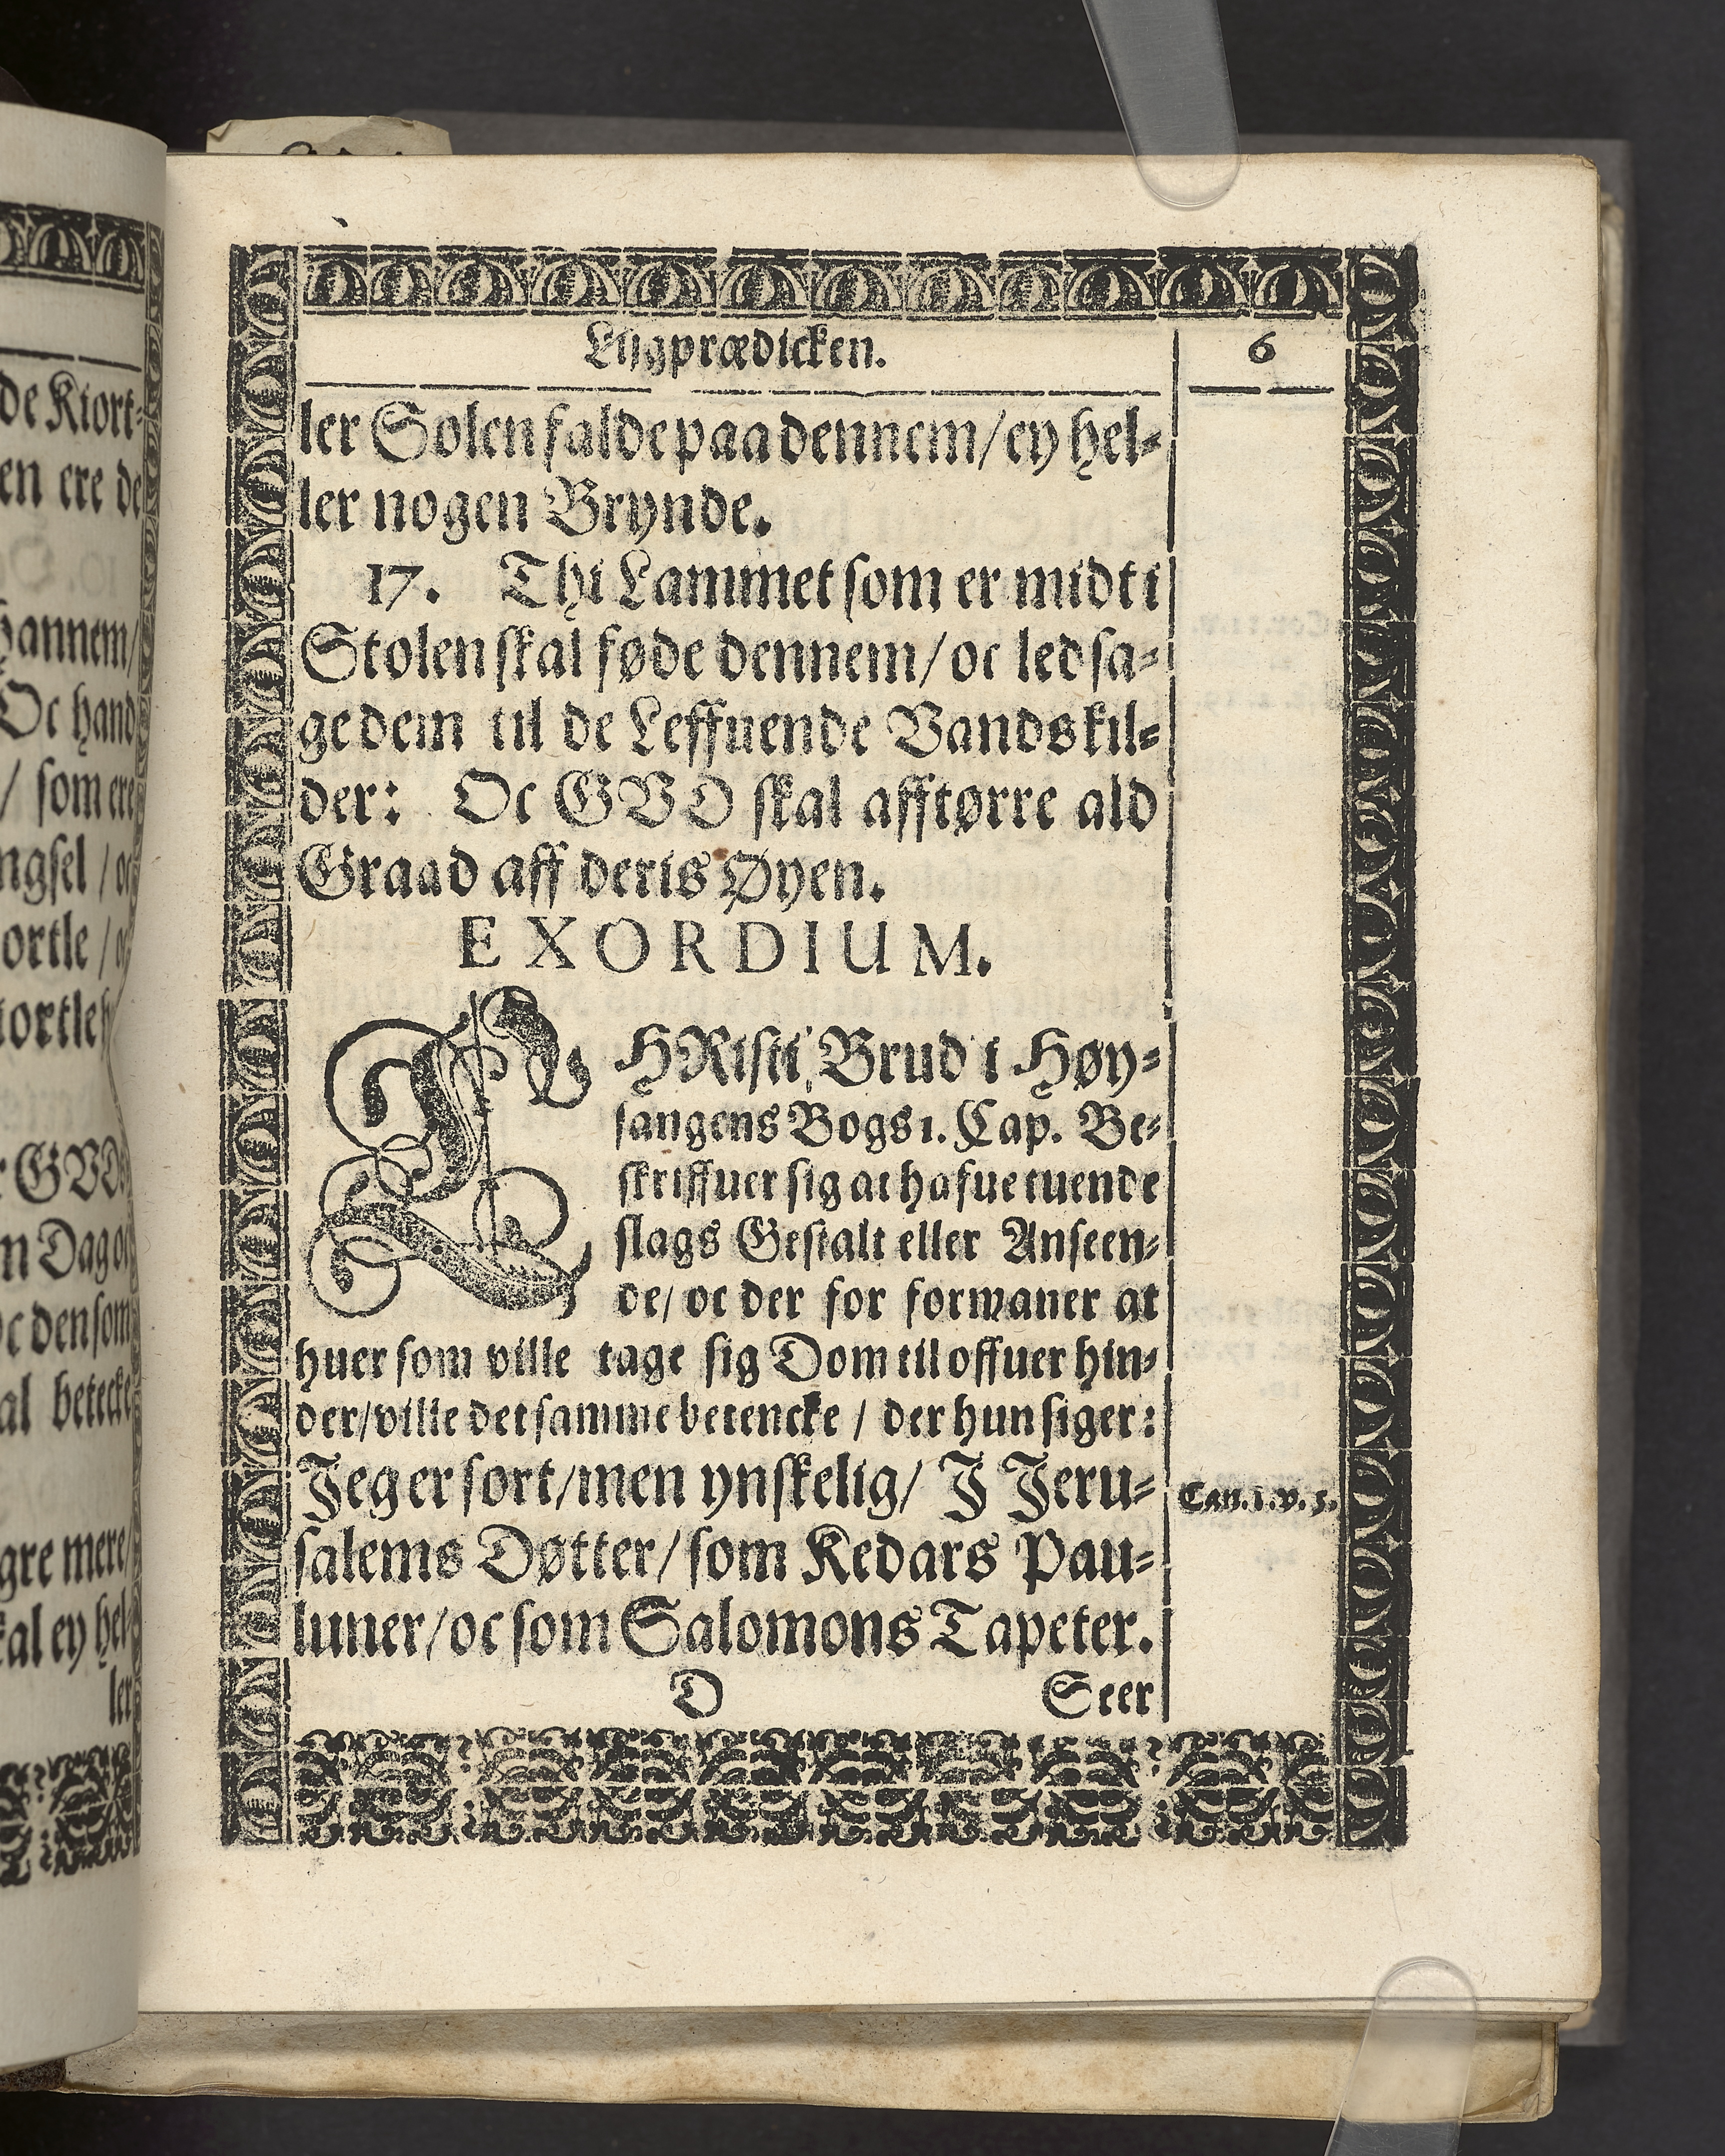 de Kiort-
en ere de
hannem/
Oc hand
/ som ere
ngsel / oc
ortle / oc
tortle
r GVD
m Dag oc
oc den som
al betecke
gre mere/
kal ey hel-
ler
Liigprædicken.
6
ler Solen falde paa dennem/ ey hel-
ler nogen Brynde.
17. Thi Lammet som er midt i
Stolen skal føde dennem/ oc ledsa-
ge dem til de Leffuende Vandskil-
der: Oc GVD skal afftørre ald
Graad aff deris Øyen.
EXORDIUM.
CHRisti Brud i Høy-
sangens Bogs 1. Cap. Be-
skriffuer sig at hafue tuende
slags Gestalt eller Anseen-
de/ oc der for formaner at
huer som ville tage sig Dom til offuer hin-
der/ ville det samme betencke / der hun siger:
Jeg er sort/ men ynskelig/ J Jeru-
salems Døtter/ som Kedars Pau-
luner/ oc som Salomons Tapeter.
Can. 1. v. 5.
D
Seer